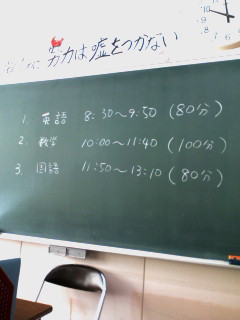 努力は嘘をつかない
1. 英語 8:30〜9:50 (80分)
2. 数学 10:00〜11:40 (100分)
3. 国語 11:50〜13:10 (80分)